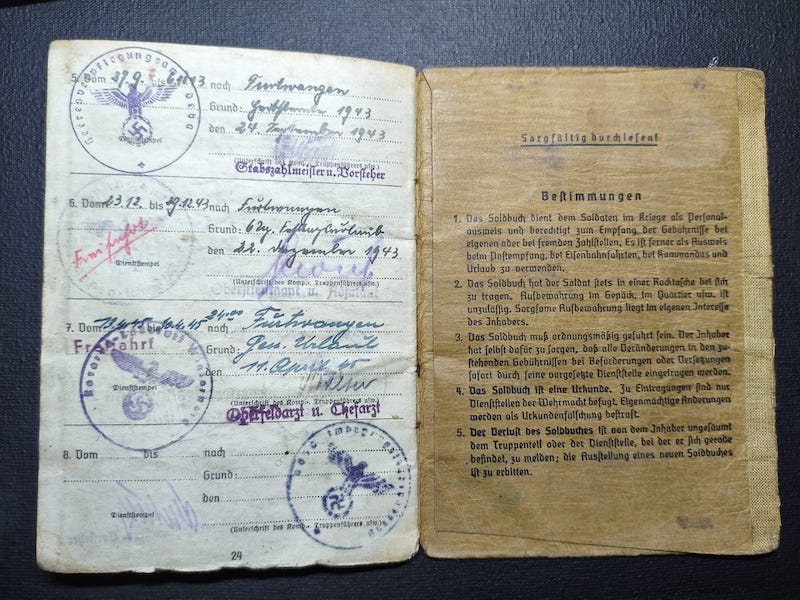 5. Vom 27.9. bis nach Furtwangen
Grund: 1943
den 24. September 1943
Dienststempel
(Unterschrift des Komp., Truppenführers usw.)
Stabszahlmeister u. Vorsteher
6. Vom 23.12. bis 29.12.43 nach Furtwangen
Freifahrt
Grund:
den 22. Dezember 1943
Dienststempel
(Unterschrift des Komp., Truppenführers usw.)
7. Vom bis nach Furtwangen
Freifahrt
Grund: Gen. Urlaub
11. April 45
Dienststempel
(Unterschrift des Komp., Truppenführers usw.)
Oberfeldarzt u. Chefarzt
8. Vom bis nach
Grund:
den
Dienststempel
(Unterschrift des Komp., Truppenführers usw.)
24
Sorgfältig durchlesen!
Bestimmungen
1. Das Soldbuch dient dem Soldaten im Kriege als Personal-
ausweis und berechtigt zum Empfang der Gebührnisse bei
eigenen oder bei fremden Zahlstellen. Es ist ferner als Ausweis
beim Postempfang, bei Eisenbahnfahrten, bei Kommandos und
Urlaub zu verwenden.
2. Das Soldbuch hat der Soldat stets in einer Rocktasche bei sich
zu tragen. Aufbewahrung im Gepäck, im Quartier usw. ist
unzulässig. Sorgsame Aufbewahrung liegt im eigenen Interesse
des Inhabers.
3. Das Soldbuch muß ordnungsmäßig geführt sein. Der Inhaber
hat selbst dafür zu sorgen, daß alle Veränderungen in den zu-
stehenden Gebührnissen bei Beförderungen oder Versetzungen
sofort durch seine vorgesetzte Dienststelle eingetragen werden.
4. Das Soldbuch ist eine Urkunde. Zu Eintragungen sind nur
Dienststellen der Wehrmacht befugt. Eigenmächtige Änderungen
werden als Urkundenfälschung bestraft.
5. Der Verlust des Soldbuches ist von dem Inhaber ungesäumt
dem Truppenteil oder der Dienststelle, bei der er sich gerade
befindet, zu melden; die Ausstellung eines neuen Soldbuches
ist zu erbitten.